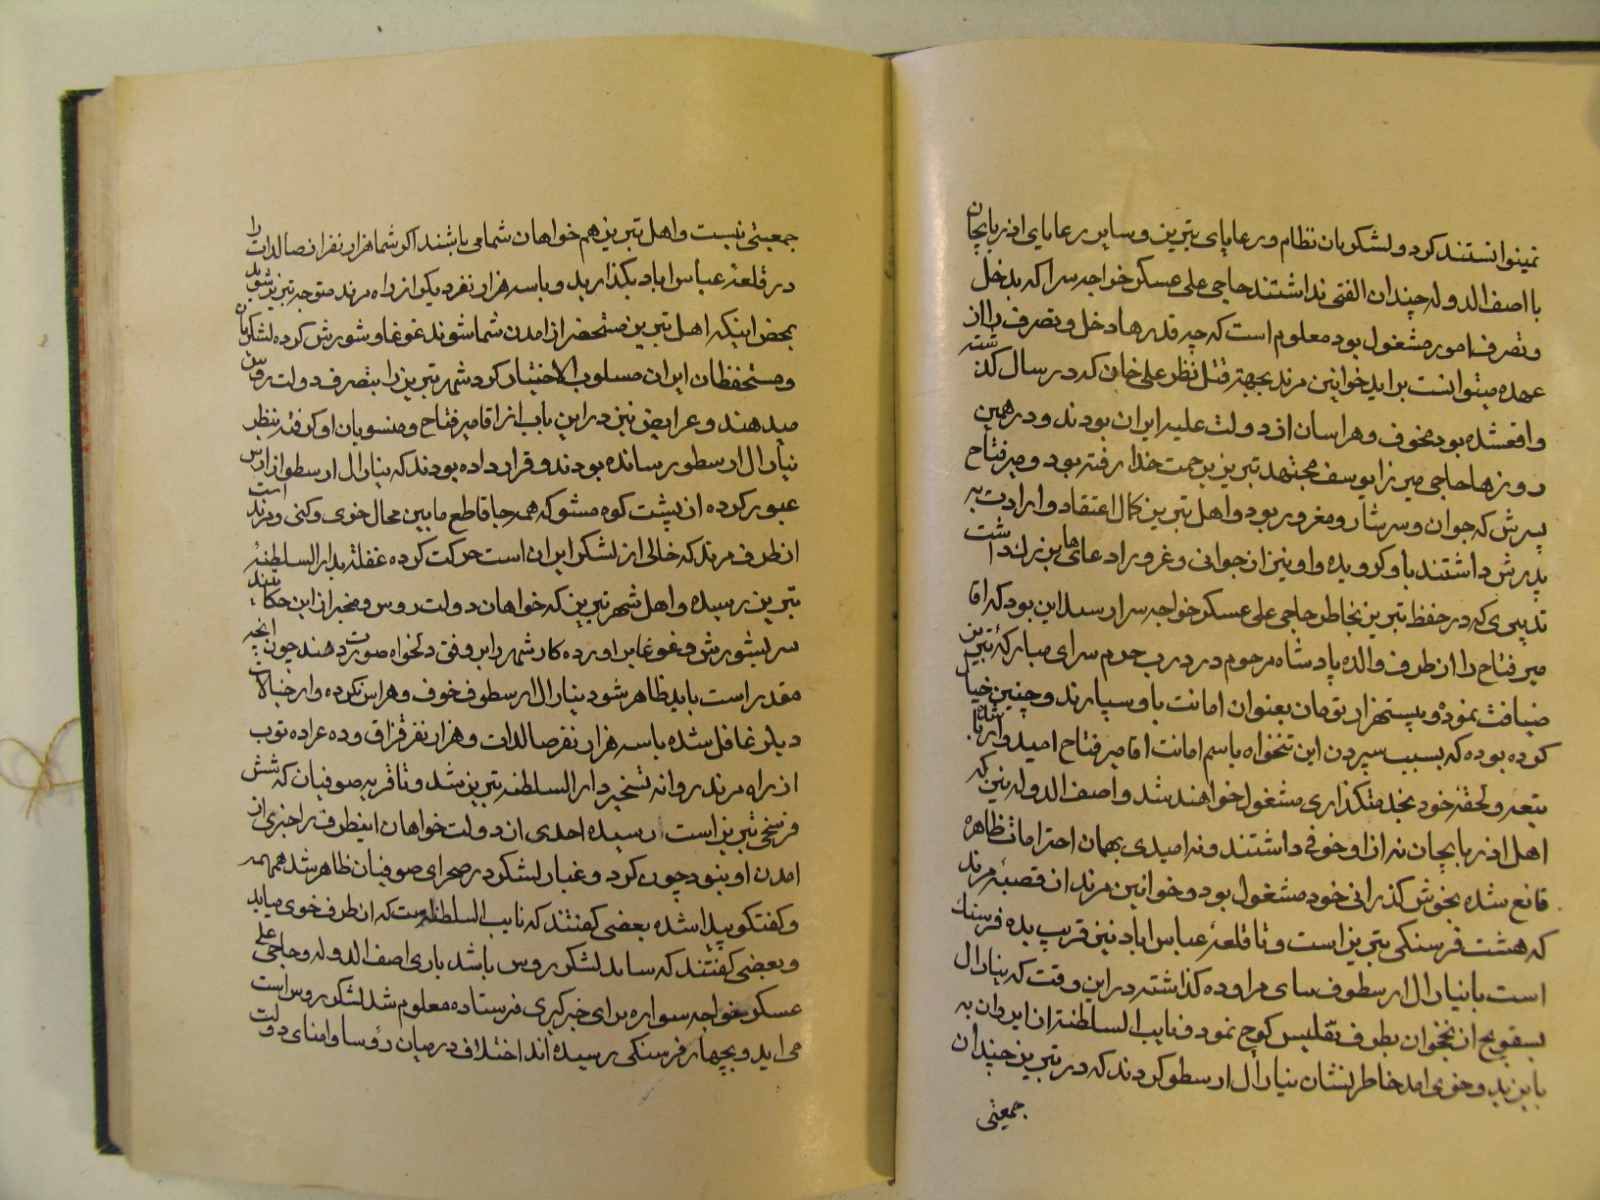 نمیتوانستند کرد و لشکریان نظام و رعایای تبریز و سایر رعایای اذربایجان
با اصف الدوله چندان الفتی نداشتند حاجی علی عسکر خواجه سرا که بدخل
و تصرف امور مشغول بود معلوم است که چه قدرها دخل و تصرف را از
عهده میتوانست براید خوانین مرند بجهة قتل نظر علی خان که در سال کذشته
واقعشده بود مخوف و هراسان از دولت علیه ایران بودند و در همین
روزها حاجی میرزا یوسف مجتهد تبریز برحمت خدا رفته بود و میر فتاح
پسرش که جوان و سرشار و مغرور بود و اهل تبریز کمال اعتقاد و ارادت به
پدرش داشتند باو کرویده و او نیز از جوانی و غرور ادعای‌ها بزرک داشت
تدبیری که در حفظ تبریز بخاطر حاجی علی عسکر خواجه سرا رسید این بود که اقا
میر فتاح را از طرف والده پادشاه مرحوم در درب حرم سرای مبارکهٔ تبریز
ضیافت نموده و بیستهزار تومان بعنوان امانت باو سپارند و چنین خیال
کرده بوده که بسبب سپردن این تنخواه باسم امانت اقا میر فتاح امیدوار
خود بخدمتکذاری مشغول خواهند شد و اصف الدوله
اهل اذربایجان نه از او خوفی داشتند و نه امیدی بهمان احترامات ظاهره
قانع شده بخوش کذرانی خود مشغول بود و خوانین مرند از قصبهٔ مرند
که هشت فرسنکی تبریز است و تا قلعهٔ عباس اباد نیز قریب بده فرسنک
است با نیارال ارسطوف بنای مراوده کذاشته در این وقت که ینارال
بسقویج از نخجوان بطرف تفلیس کوچ نمود و نایب السلطنه از ایروان به
بایزید و خوی امد خاطر نشان ینارال ارسطو کردند که در تبریز چندان
جمعیتی
جمعیتی نیست و اهل تبریز هم خواهان شما می باشند اکر شما هزار نفر از صالدات را
در قلعهٔ عباس اباد بکذارید و با سه هزار نفر دیکر از راه مرند متوجه تبریز شوید
بمحض اینکه اهل تبریز مستحضر از امدن شما شوند غوغا و شورش کرده لشکریان
و مستحفظان ایران مسلوب الاختیار کرد شهر تبریز را بتصرف دولت روس
میدهند و عرایض نیز در این باب از اقا میر فتاح و منسوبان او کرفته بنظر
نیارال ارسطو رسانده بودند و قرار داده بودند که ینارال ارسطو از ارس
عبور کرده از پشت کوه مشو که همه جا قاطع ما بین محال خوی و کنی و مرند است
از طرف مرند که خالی از لشکر ایران است حرکت کرده غفلة بدار السلطنهٔ
تبریز رسیده و اهل شهر تبریز که خواهان دولت روس و مخبر از این حکایتند
سر بشورش و غوغا براورده کار شهر را بر وفق دلخواه صورت دهند چون انچه
مقدر است باید ظاهر شود ینارال ارسطوف خوف و هراس نکرده و از خیالات
دیکر غافل شده با سه هزار نفر صالدات و هزار نفر قزاق و ده عراده توپ
از راه مرند روانه تسخیر دار السلطنه تبریز شد و تا قریه صوفیان که شش
فرسخی تبریز است رسیده احدی از دولت خواهان اینطرف را خبری از
امدن او نبود چون کرد و غبار لشکر در صحرای صوفیان ظاهر شد همهمه
و کفتکو پیدا شده بعضی کفتند که نایب السلطنه است که از طرف خوی میاید
و بعضی کفتند که شاید لشکر روس باشد باری اصف الدوله و حاجی علی
عسکر خواجه سواره برای خبر کیری فرستاده معلوم شد لشکر روس است
می اید و بچهار فرسنکی رسیده اند اختلاف در میان رؤسا و امنای دولت